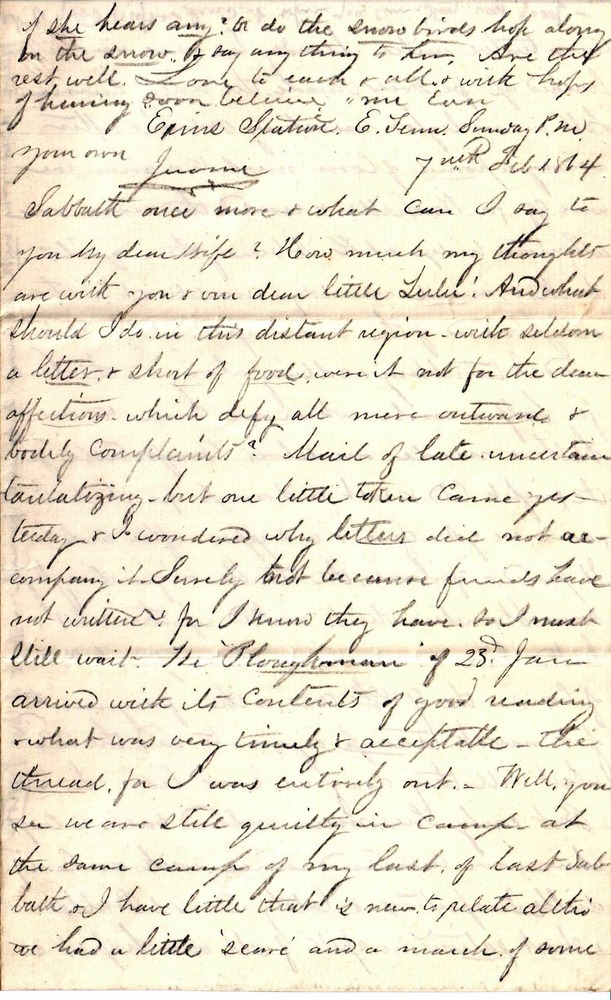 if she hears any? or do the snow birds hop along
on the snow, & say any thing to her, Are the
rest well. Love to each & all, & with hopes
of hearing soon believe me Ever
Erins Station. E. Tenn. Sunday P.M.
your own Jerome
7th Feb 1864.
Sabbath once more & what can I say to
you My dear Wife? How much my thoughts
are with you & our dear little Lulu! And what
should I do in this distant region - with seldom
a letter, & short of food, were it not for the dear
affections - which defy all mere outward &
bodily complaints? Mail of late uncertain
tantalizing - but one little token came yes-
terday & I wondered why letters did not ac-
company it. Surely not because friends have
not written! for I know they have. So I must
still wait. The "Ploughman" of 23d Jan
arrived with its contents of good reading
& what was very timely & acceptable - the
thread, for I was entirely out. - Well, you
see we are still quietly in camp - at
the same camp of my last, of last Sab-
bath & I have little that is new to relate altho
we had a little 'scare' and a march of some